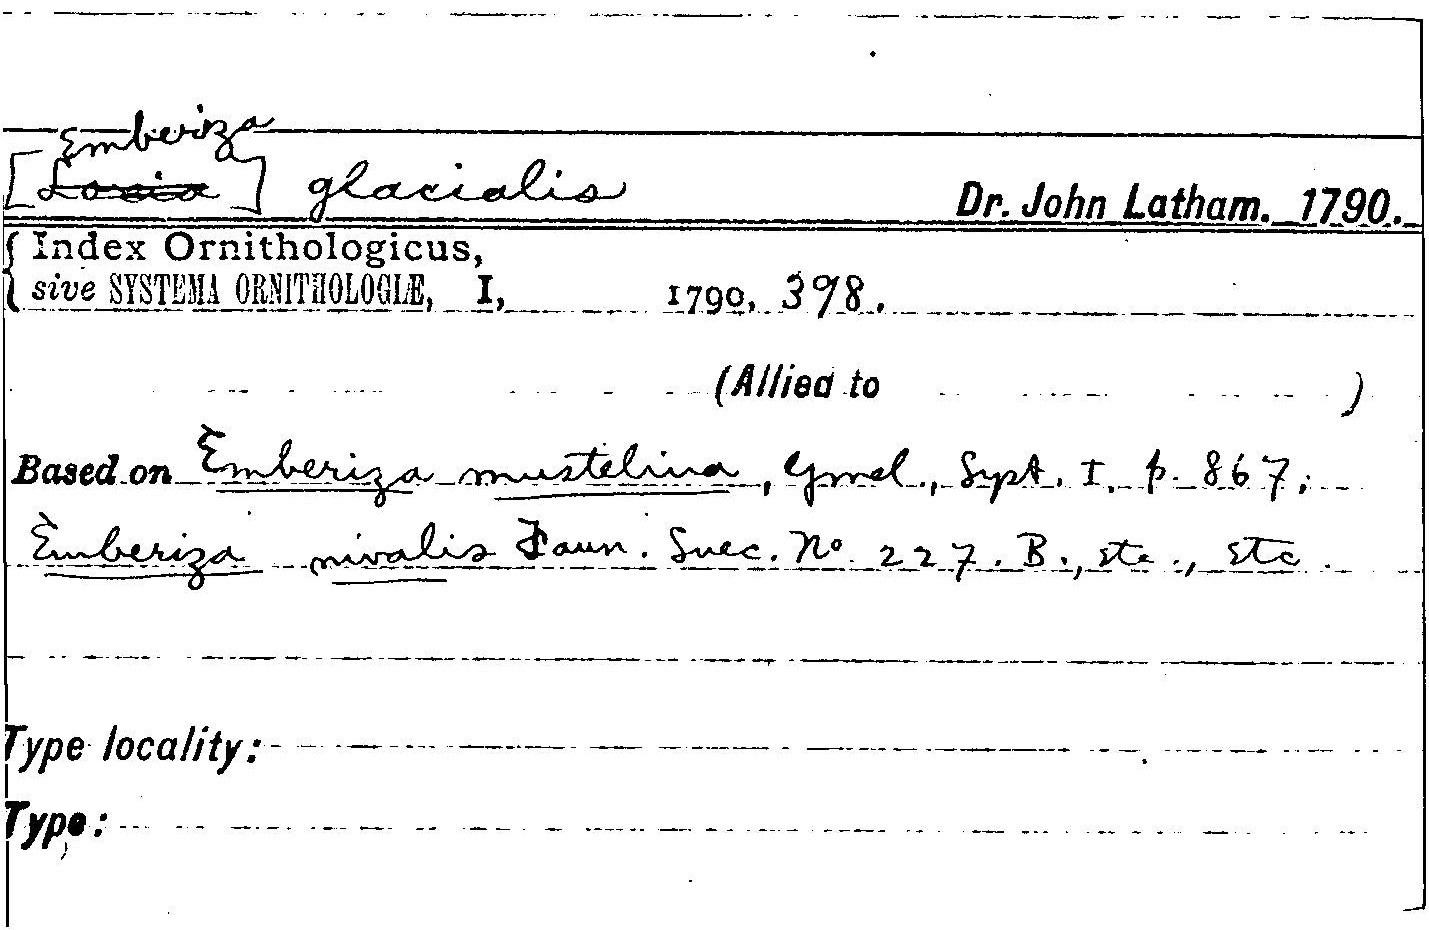 Emberiza
[Loxia] glacialis Dr. John Latham. 1790.
{ Index Ornithologicus,
sive SYSTEMA ORNITHOLOGIÆ, I, 1790, 398.
(Allied to )
Based on Emberiza mustelina, Gmel., Syst. I, p. 867;
Emberiza nivalis Faun. Suec. No 227. B., etc., etc.
Type locality:
Type: